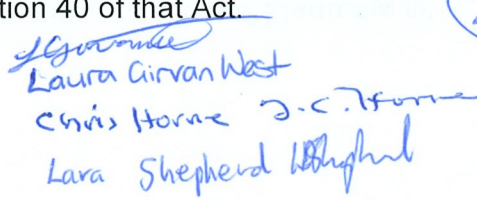 tion 40 of that Act.
Laura Girvan West
Chris Horne J.C. Horne
Lara Shepherd